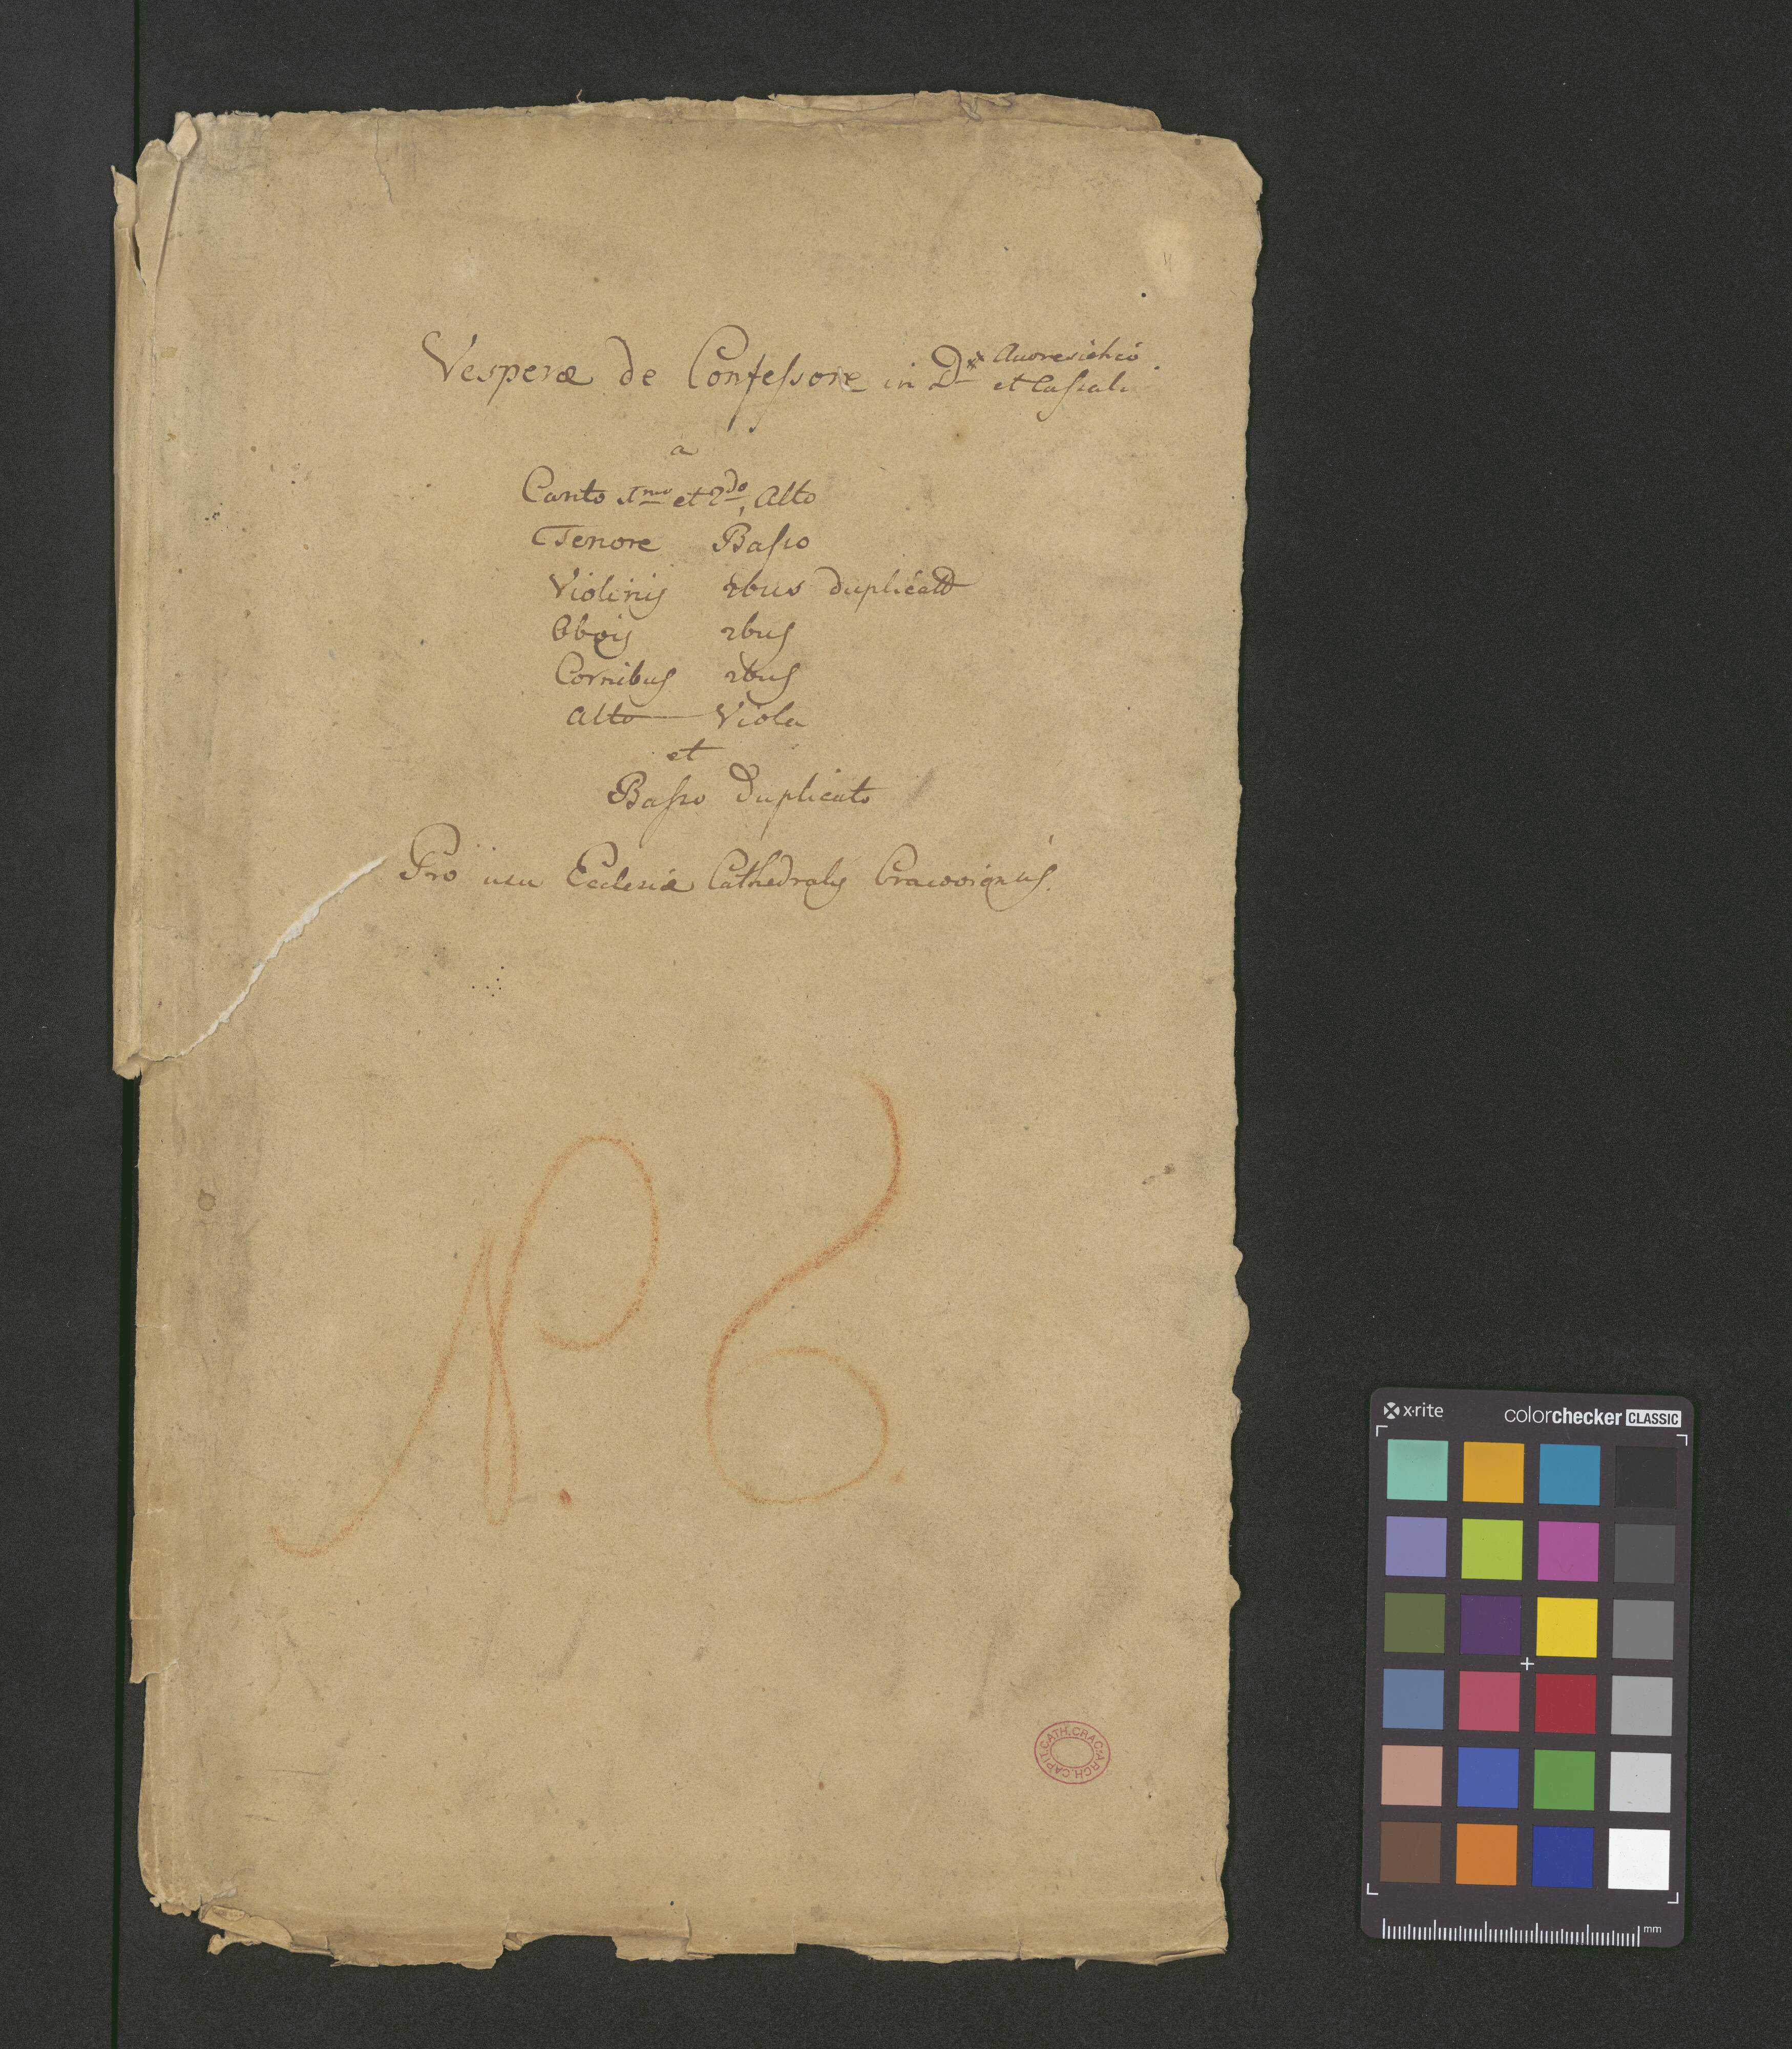 Vesperæ de Confessore in D# Auoresichio
et Cassali
a
Canto 1mo et 2do, Alto
Tenore Basso
Violinis 2bus duplicato
Obois 2bus
Cornibus 2bus
Alto Viola
et
Basso Duplicato
Pro usu Ecclesiæ Cathedralis
N. 6.
CATH. CRAC. ARCH. CAPIT.
x·rite
colorchecker CLASSIC
mm